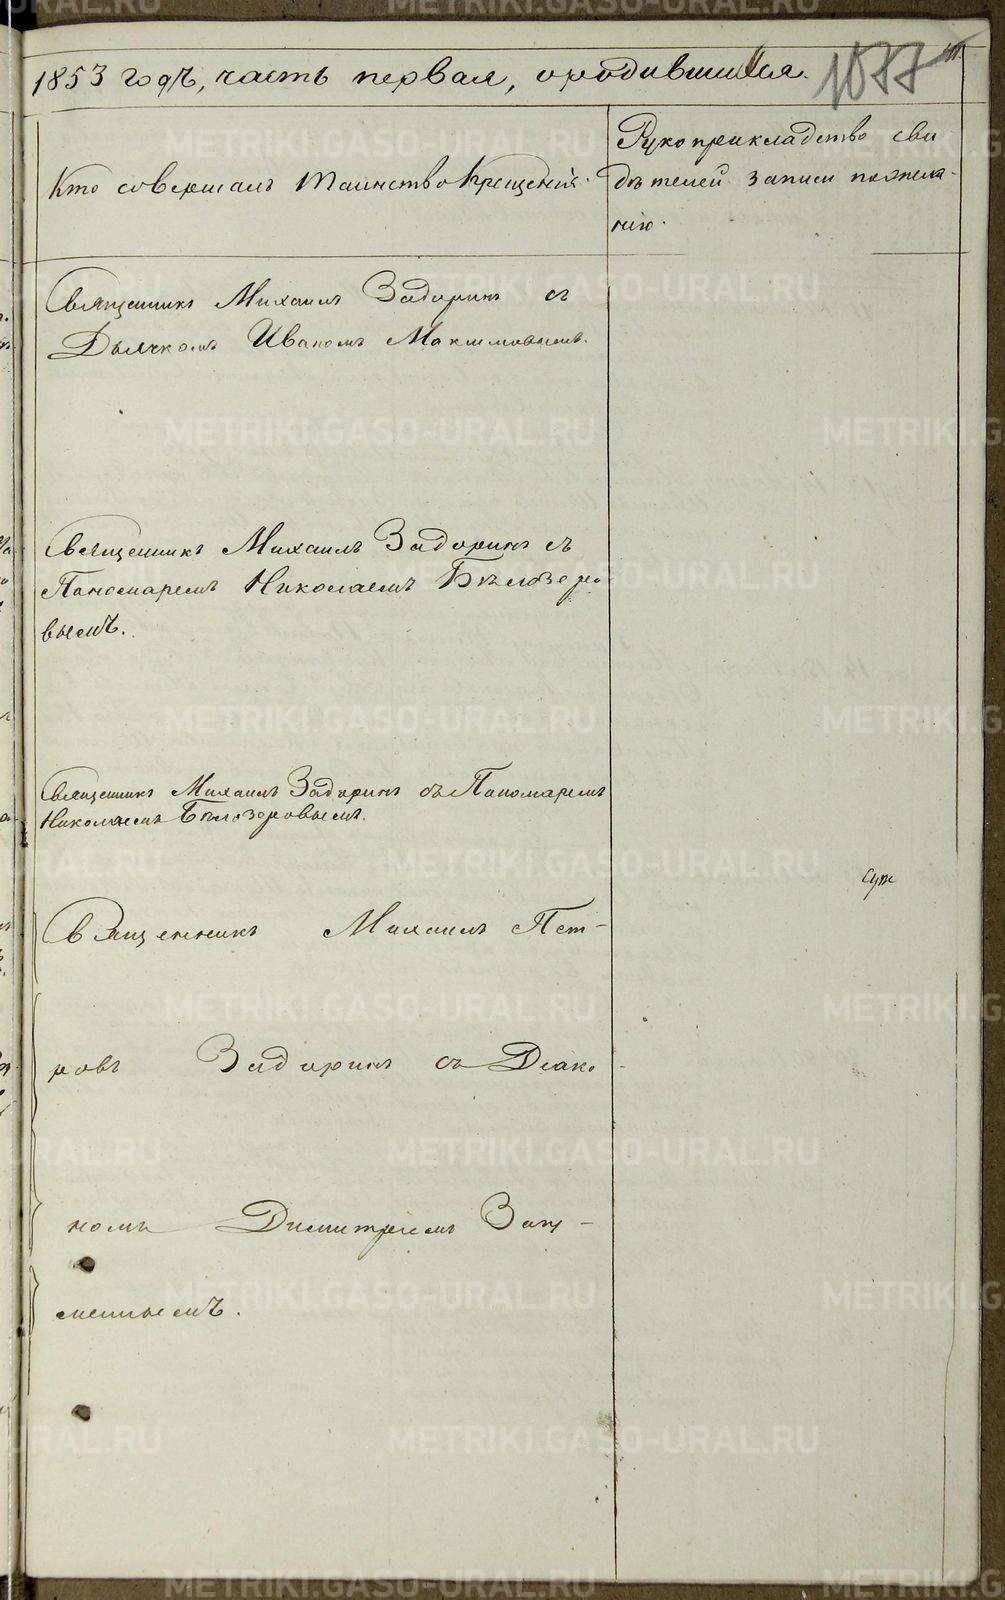 1853 годъ, часть первая, ородившихся.
1077
Кто совершалъ таинство Крещенія.
Рукоприкладство сви
дѣтелей записи пожела-
нію.
Священникъ Михаилъ Задоринъ съ
Дьячкомъ Иваномъ Максимовымъ.
Священникъ Михаилъ Задоринъ съ
Пономаремъ Николаемъ Бѣлозеро
вымъ.
Священникъ Михаилъ Задоринъ съ Пономаремъ
Николаемъ Бѣлозеровымъ.
Священникъ Михаилъ Пет-
ровъ Задоринъ съ Діако
номъ Димитріемъ
METRIKI.GASO-URAL.RU